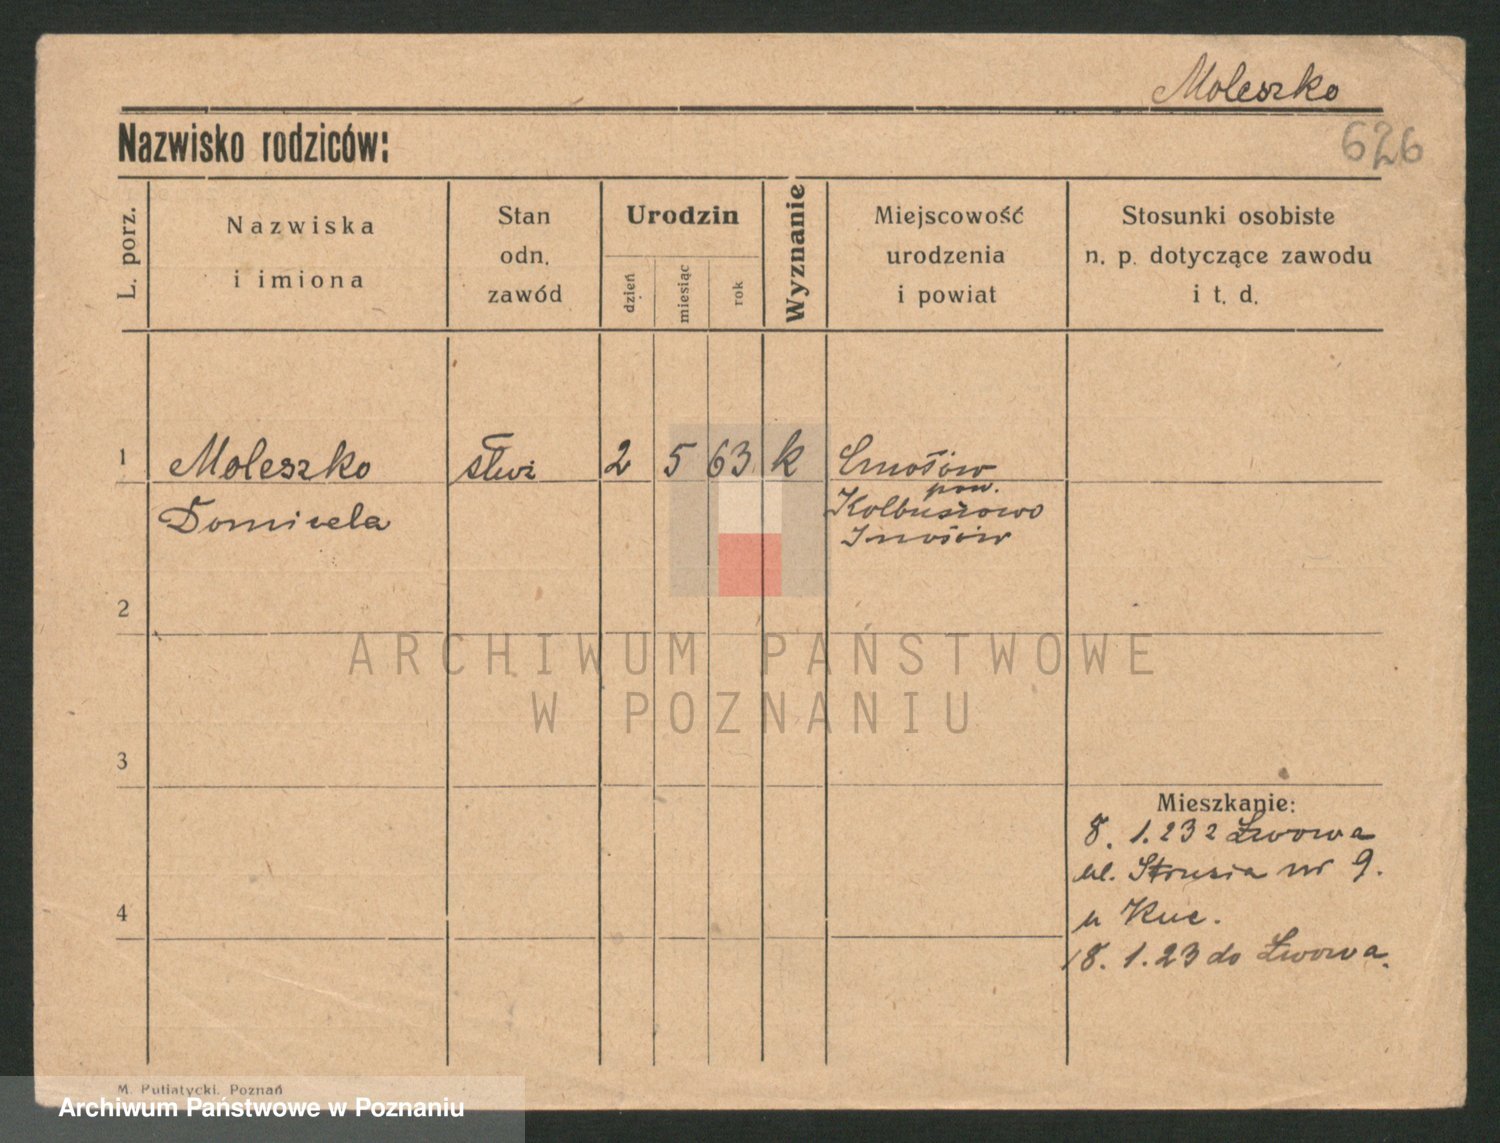 Moleszko
Nazwisko rodziców:
626
L. porz.
Nazwiska
i imiona
Stan
odn.
zawód
Urodzin
dzień
miesiąc
rok
Wyznanie
Miejscowość
urodzenia
i powiat
Stosunki osobiste
n. p. dotyczące zawodu
i t. d.
1
Moleszko
służ
2 5 63 k
Domicela
pow.
Kolbuszowo
2
ARCHIWUM PAŃSTWOWE
W POZNANIU
3
Mieszkanie:
8. 1. 23 z Lwowa
ul. Strusia nr 9.
u Kuc.
4
18. 1. 23 do Lwowa.
M. Putiatycki, Poznań
Archiwum Państwowe w Poznaniu